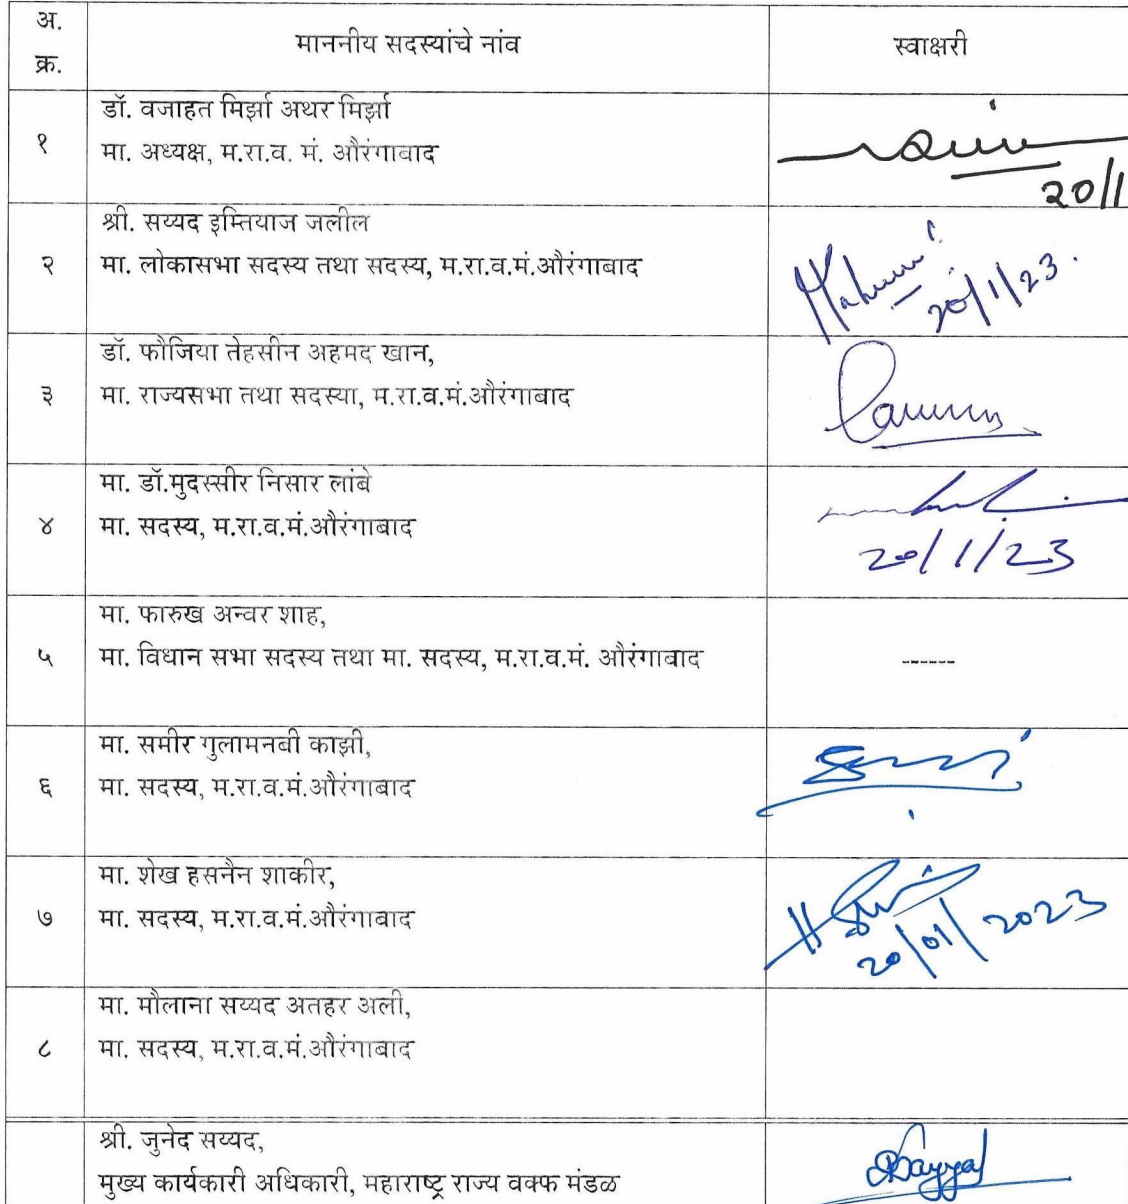 अ.
क्र.
माननीय सदस्यांचे नांव
स्वाक्षरी
१
डॉ. वजाहत मिर्झा अथर मिर्झा
मा. अध्यक्ष, म.रा.व. मं. औरंगाबाद
20/1
२
श्री. सय्यद इम्तियाज जलील
मा. लोकासभा सदस्य तथा सदस्य, म.रा.व.मं.औरंगाबाद
20/1/23.
३
डॉ. फौजिया तेहसीन अहमद खान,
मा. राज्यसभा तथा सदस्या, म.रा.व.मं.औरंगाबाद
४
मा. डॉ.मुदस्सीर निसार लांबे
मा. सदस्य, म.रा.व.मं.औरंगाबाद
20/1/23
५
मा. फारुख अन्वर शाह,
मा. विधान सभा सदस्य तथा मा. सदस्य, म.रा.व.मं. औरंगाबाद
------
६
मा. समीर गुलामनबी काझी,
मा. सदस्य, म.रा.व.मं.औरंगाबाद
७
मा. शेख हसनैन शाकीर,
मा. सदस्य, म.रा.व.मं.औरंगाबाद
20/01/2023
८
मा. मौलाना सय्यद अतहर अली,
मा. सदस्य, म.रा.व.मं.औरंगाबाद
श्री. जुनेद सय्यद,
मुख्य कार्यकारी अधिकारी, महाराष्ट्र राज्य वक्फ मंडळ